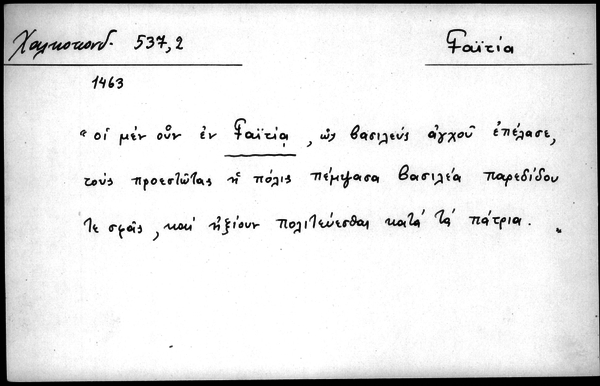 Χαλκοκονδ. 537,2
Γαϊτία
1463
"οἱ μὲν οὖν ἐν Γαϊτίᾳ, ὡς βασιλεὺς ἀγχοῦ ἐπέλασε,
τοὺς προεστῶτας ἡ πόλις πέμψασα βασιλέα παρεδίδου
τε σφᾶς, καὶ ἠξίουν πολιτεύεσθαι κατὰ τὰ πάτρια."